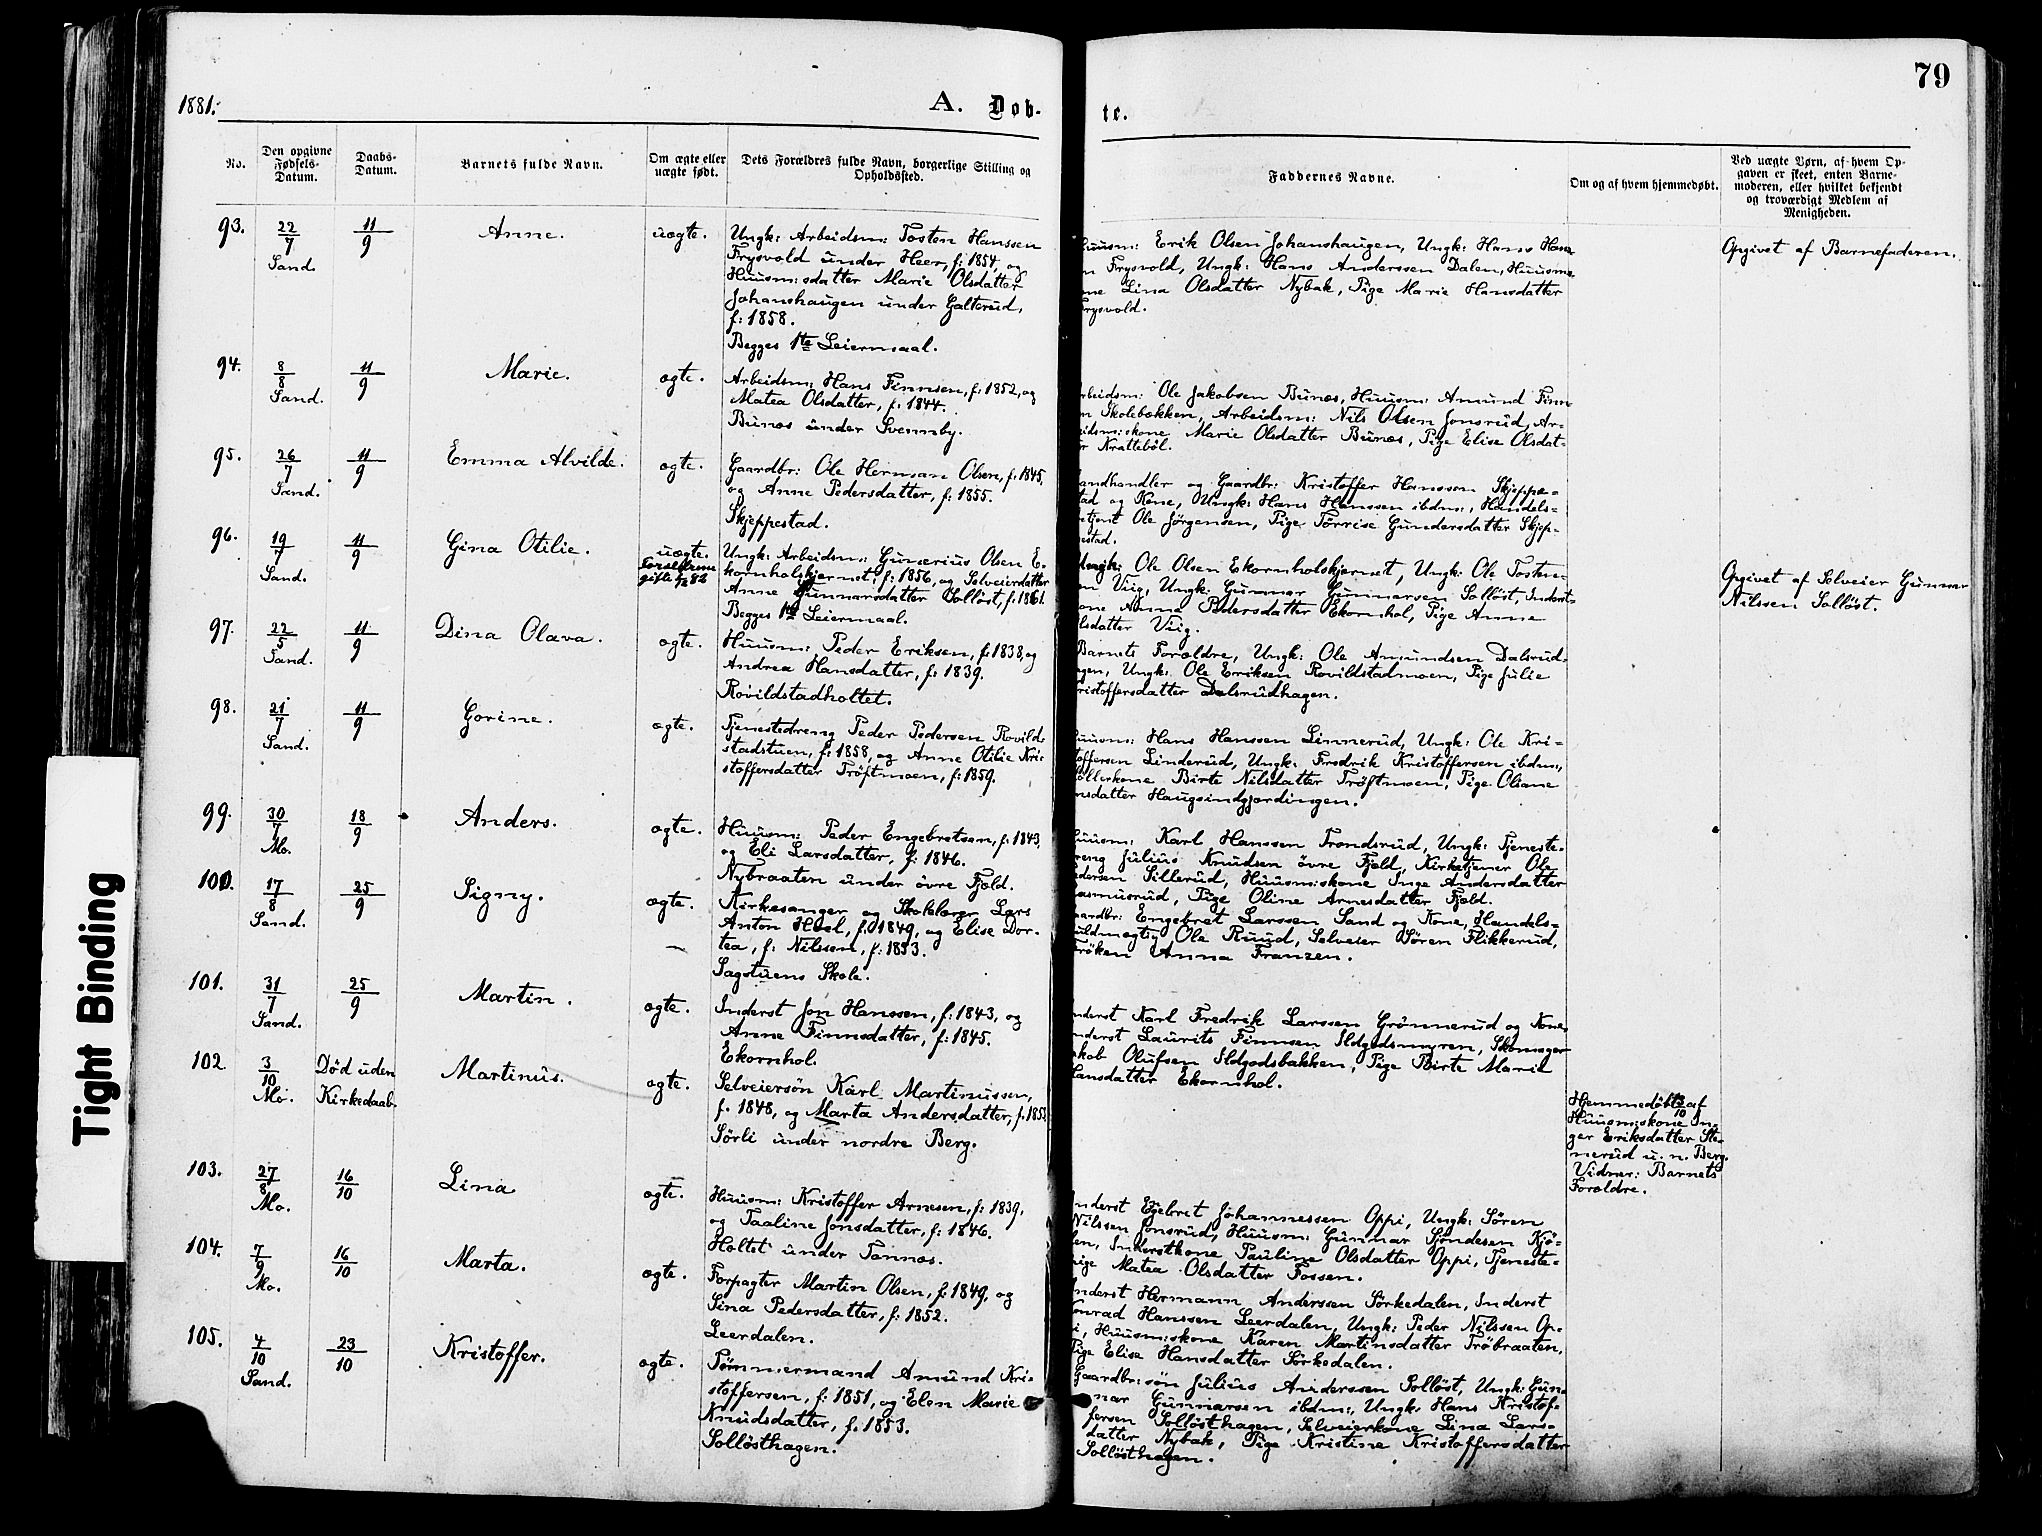 79
1881.
A. Døb-
te.
No.
Den opgivne
Fødsels-
Datum.
Daabs-
Datum.
Barnets fulde Navn.
Om ægte eller
uægte født.
Dets Forældres fulde Navn, borgerlige Stilling og
Opholdssted.
Faddernes Navne.
Om og af hvem hjemmedøbt.
Ved uægte Børn, af hvem Op-
gaven er skeet, enten Barne-
moderen, eller hvilket bekjendt
og troværdigt Medlem af
Menigheden.
93.
22/7
Sand.
11/9
Anne.
uægte.
Ungk: Arbeidsm: Tosten Hanssen
Frysvold under Heer, f: 1854, og
Huusm:sdatter Marie Olsdatter
Johanshaugen under Galterud,
f: 1858.
Begges 1te Leiermaal.
Huusm: Erik Olsen Johanshaugen, Ungk: Hans Hans
en Frysvold, Ungk: Hans Anderssen Dalen, Huusm
ne Lina Olsdatter Nybak, Pige Marie Hansdatter
Frysvold.
Opgivet af Barnefaderen.
94.
8/8
Sand.
11/9
Marie.
ægte.
Arbeidsm: Hans Finnsen, f: 1852, og
Matea Olsdatter, f: 1844.
Bunæs under Svennby.
rbeidsm: Ole Jakobsen Bunæs, Huusm: Amund Finn
n Skolebækken, Arbeidsm: Nils Olsen Jonsrud, Ar-
eidsm:skone Marie Olsdatter Bunæs, Pige Elise Olsdat-
er Kratteböl.
95.
26/7
Sand.
11/9
Emma Alvilde.
ægte.
Gaardbr: Ole Herman Olsen, f: 1845,
og Anne Pedersdatter, f: 1855.
Skjeppestad.
andhandler og Gaardbr: Kristoffer Hanssen Skjeppe-
tad og Kone, Ungk: Hans Hanssen ibdm:, Handels-
etjent Ole Jørgensen, Pige Torrise Gundersdatter Skjep-
estad.
96.
19/7
Sand.
11/9
Gina Otilie.
uægte.
Forældrene
gifte 82
Ungk: Arbeidsm: Gunerius Olsen E-
kornholskjernet, f: 1856, og Selveierdatter
Anne Gunnarsdatter Solløst, f: 1861.
Begges 1te Leiermaal.
Ungk: Ole Olsen Ekornholskjernet, Ungk: Ole Tosten-
en Viig, Ungk: Gunnar Gunnarsen Solløst, Inderst-
one Anne Pedersdatter Ekornhol, Pige Anne
lsdatter Viig.
Opgivet af Selveier Gunnar
Nilssen Solløst.
97.
22/5
Sand.
11/9
Dina Olava.
ægte.
Huusm: Peder Eriksen, f: 1838, og
Andrea Hansdatter, f: 1839.
Rovildstadholtet.
Barnets Forældre, Ungk: Ole Amundsen Dalsrud-
gen, Ungk: Ole Eriksen Rovildstadmoen, Pige Julie
ristoffersdatter Dalsrudhagen.
98.
21/7
Sand.
11/9
Gorine.
ægte.
Tjenestedreng Peder Pedersen Rovild-
stadstuen, f: 1858, og Anne Otilie Kri-
stoffersdatter Tröftmoen, f: 1859.
uusm: Hans Hanssen Linnerud, Ungk: Ole Kri-
toffersen Linderud, Ungk: Fredrik Kristoffersen ibdm:,
öllerkone Birte Nilsdatter Tröftmoen, Pige Oliane
nsdatter Haugsindgjærdingen.
99.
30/7
Mo.
18/9
Anders.
ægte.
Huusm: Peder Engebretsen, f: 1843,
og Eli Larsdatter, f: 1846.
Nybraaten under övre Fjeld.
uusm: Karl Hanssen Trondsrud, Ungk: Tjeneste-
reng Julius Knudsen övre Fjeld, Kirketjener Ole
edersen Sillerud, Huusm:skone Inge Andersdatter
asmusrud, Pige Oline Arnesdatter Fjeld.
100.
17/8
Sand.
25/9
Signy.
ægte.
Kirkesanger og Skolelærer Lars
Anton Hoel, f: 1849, og Elise Dor-
tea, f: Nilssen, f: 1853.
Sagstuens Skole.
aardbr: Engebret Larssen Sand og Kone, Handels-
uldmægtig Ole Ruud, Selveier Sören Flikkerud,
Fröken Anna Franzen.
101.
31/7
Sand.
25/9
Martin.
ægte.
Inderst Jon Hanssen, f: 1843, og
Anne Finnsdatter, f: 1845.
Ekornhol.
nderst Karl Fredrik Larssen Grönnerud og Kone,
nderst Laurits Finnsen Ildgodsmyren, Skomager
akob Olufsen Ildgodsbakken, Pige Birte Marie
Hansdatter Ekornhol.
102.
3/10
Mo.
Død uden
Kirkedaab.
Martinus.
ægte.
Selveiersön Karl Martinussen,
f. 1848, og Marta Andersdatter, f. 1853
Sörli under nordre Berg.
Hjemmedøbt 3/10 af
Huusm:skone In-
ger Eriksdatter Ste-
nerud u. n. Berg.
Vidner: Barnets
Forældre.
103.
27/8
Mo.
16/10
Lina
ægte.
Huusm: Kristoffer Arnesen, f: 1839,
og Taaline Jonsdatter, f: 1846.
Holtet under Tannæs.
nderst Egebret Johannessen Oppi, Ungk: Sören
Nilssen Jonsrud, Huusm: Gunnar Tjøndesen Kjö-
len, Inderstkone Pauline Olsdatter Oppi, Tjeneste-
pige Matea Olsdatter Fossen.
104.
7/9
Mo.
16/10
Marta.
ægte.
Forpagter Martin Olsen, f: 1849, og
Sina Pedersdatter, f: 1852.
Leerdalen.
nderst Hermann Anderssen Sörkedalen, Inderst
Konrad Hanssen Leerdalen, Ungk: Peder Nilssen Op-
i, Huusm:skone Karen Martinsdatter Tröbraaten,
Pige Elise Hansdatter Sörkedalen.
105.
4/10
Sand.
23/10
Kristoffer.
ægte.
Tömmermand Amund Kri-
stoffersen, f: 1851, og Elen Marie
Knudsdatter, f: 1853.
Sollösthagen.
Gaardbr:sön Julius Anderssen Sollöst, Ungk: Gun-
nar Gunnarsen ibdm:, Ungk: Hans Kristof-
fersen Sollösthagen, Selveierkone Lina Lars-
datter Nybak, Pige Kristine Kristoffersdatter
Sollösthagen.
Tight Binding